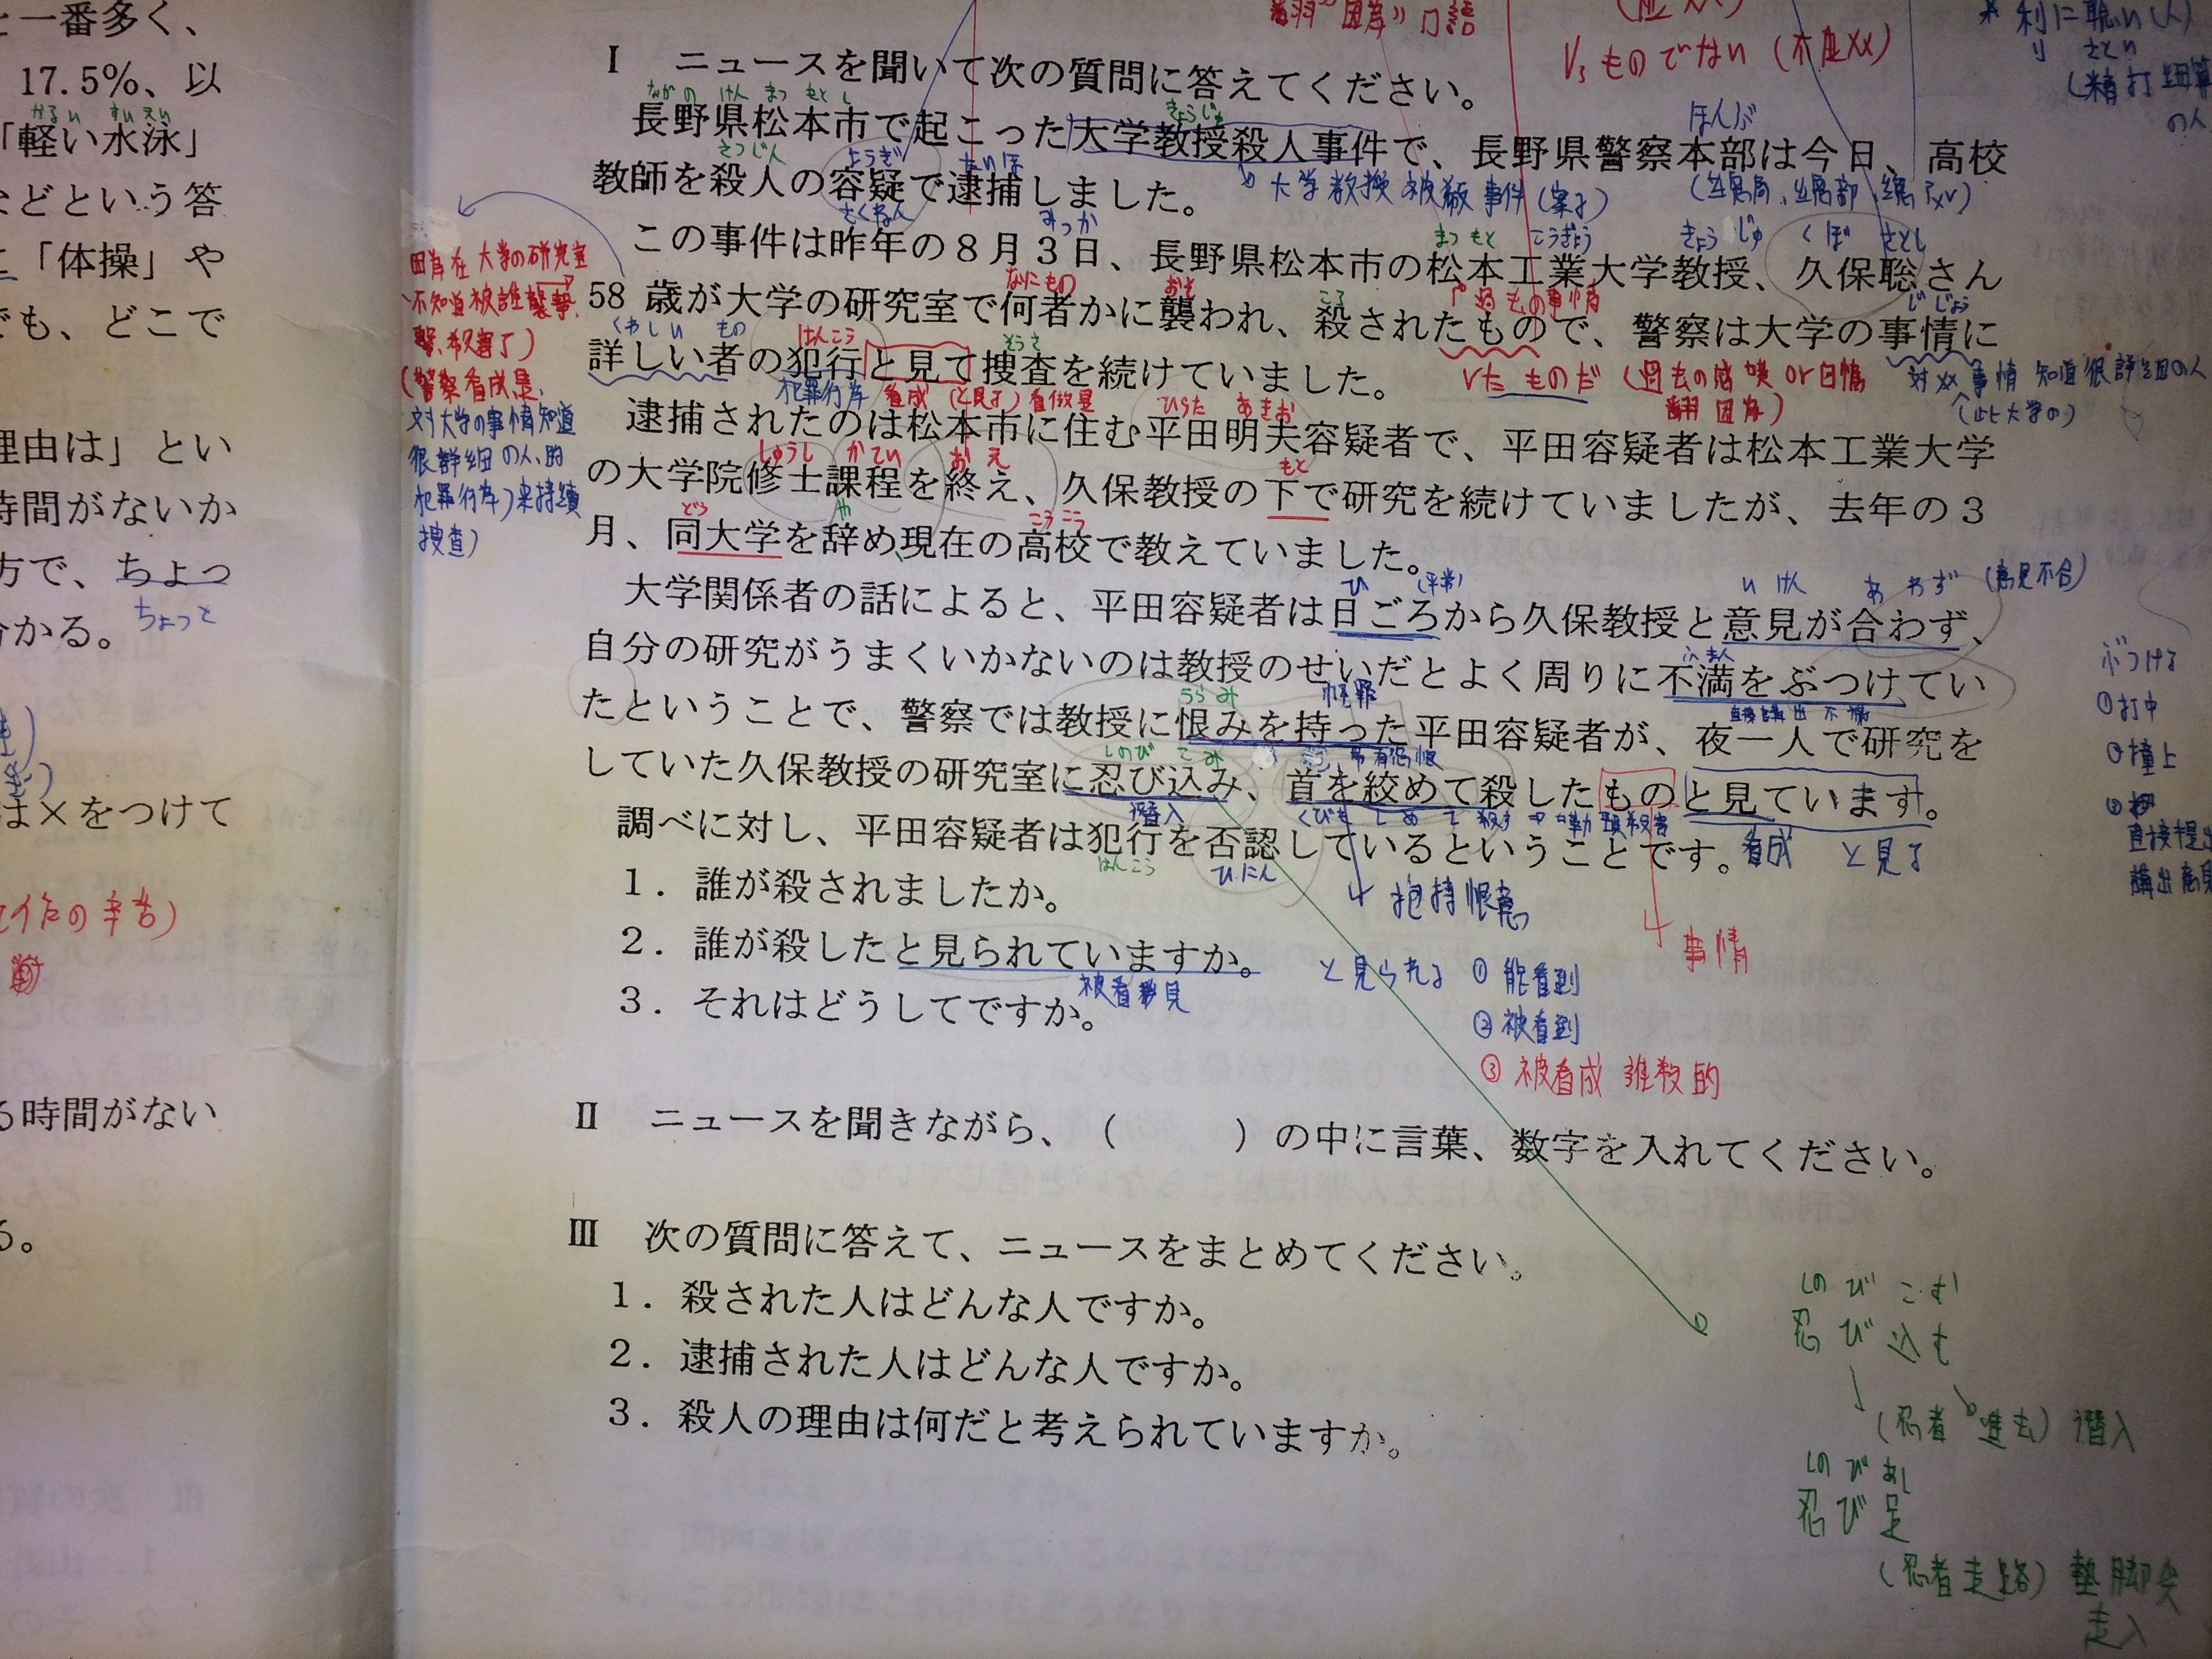 と一番多く、
17.5%、以
かるい すいえい
「軽い水泳」
などという答
「体操」や
でも、どこで
理由は」とい
時間がないか
方で、ちょっ
ちょっと
分かる。
は×をつけて
る時間がない
る。
Ⅰ ニュースを聞いて次の質問に答えてください。
Vるものでない
ながの けん まつ もと し
きょうじゅ
ほんぶ
長野県松本市で起こった大学教授殺人事件で、長野県警察本部は今日、高校
さつじん ようぎ たいほ
教師を殺人の容疑で逮捕しました。
大学教授被殺事件(案子)
さくねん みっか
まつもと こうぎょう きょうじゅ くぼ さとし
この事件は昨年の8月3日、長野県松本市の松本工業大学教授、久保聡さん
なにもの おそ ころ じじょう
58 歳が大学の研究室で何者かに襲われ、殺されたもので、警察は大学の事情に
くわしい もの はんこう そうさ
詳しい者の犯行と見て捜査を続けていました。
犯罪行為 看成 (と見る) 看做是
Vた ものだ
ひらた あきお
逮捕されたのは松本市に住む平田明夫容疑者で、平田容疑者は松本工業大学
しゅうし かてい おえ もと
の大学院修士課程を終え、久保教授の下で研究を続けていましたが、去年の3
どう や こうこう
月、同大学を辞め現在の高校で教えていました。
ひ (平常) いけん あわず (意見不合)
大学関係者の話によると、平田容疑者は日ごろから久保教授と意見が合わず、
ふまん
自分の研究がうまくいかないのは教授のせいだとよく周りに不満をぶつけてい
うらみ
たということで、警察では教授に恨みを持った平田容疑者が、夜一人で研究を
しのび こみ
していた久保教授の研究室に忍び込み、首を絞めて殺したものと見ています。
潜入
調べに対し、平田容疑者は犯行を否認しているということです。
はんこう ひにん
看成 と見る
1．誰が殺されましたか。
抱持恨意
2．誰が殺したと見られていますか。
事情
3．それはどうしてですか。
と見られる ① 能看到
② 被看到
③ 被看成 誰殺的
ぶつける
①打中
②撞上
直接提出
講出意見
Ⅱ ニュースを聞きながら、（　　　）の中に言葉、数字を入れてください。
Ⅲ 次の質問に答えて、ニュースをまとめてください。
1．殺された人はどんな人ですか。
2．逮捕された人はどんな人ですか。
3．殺人の理由は何だと考えられていますか。
しのび こむ
忍び込む
(忍者 進去) 潜入
しのび あし
忍び足
(忍者走路) 墊脚尖
走入